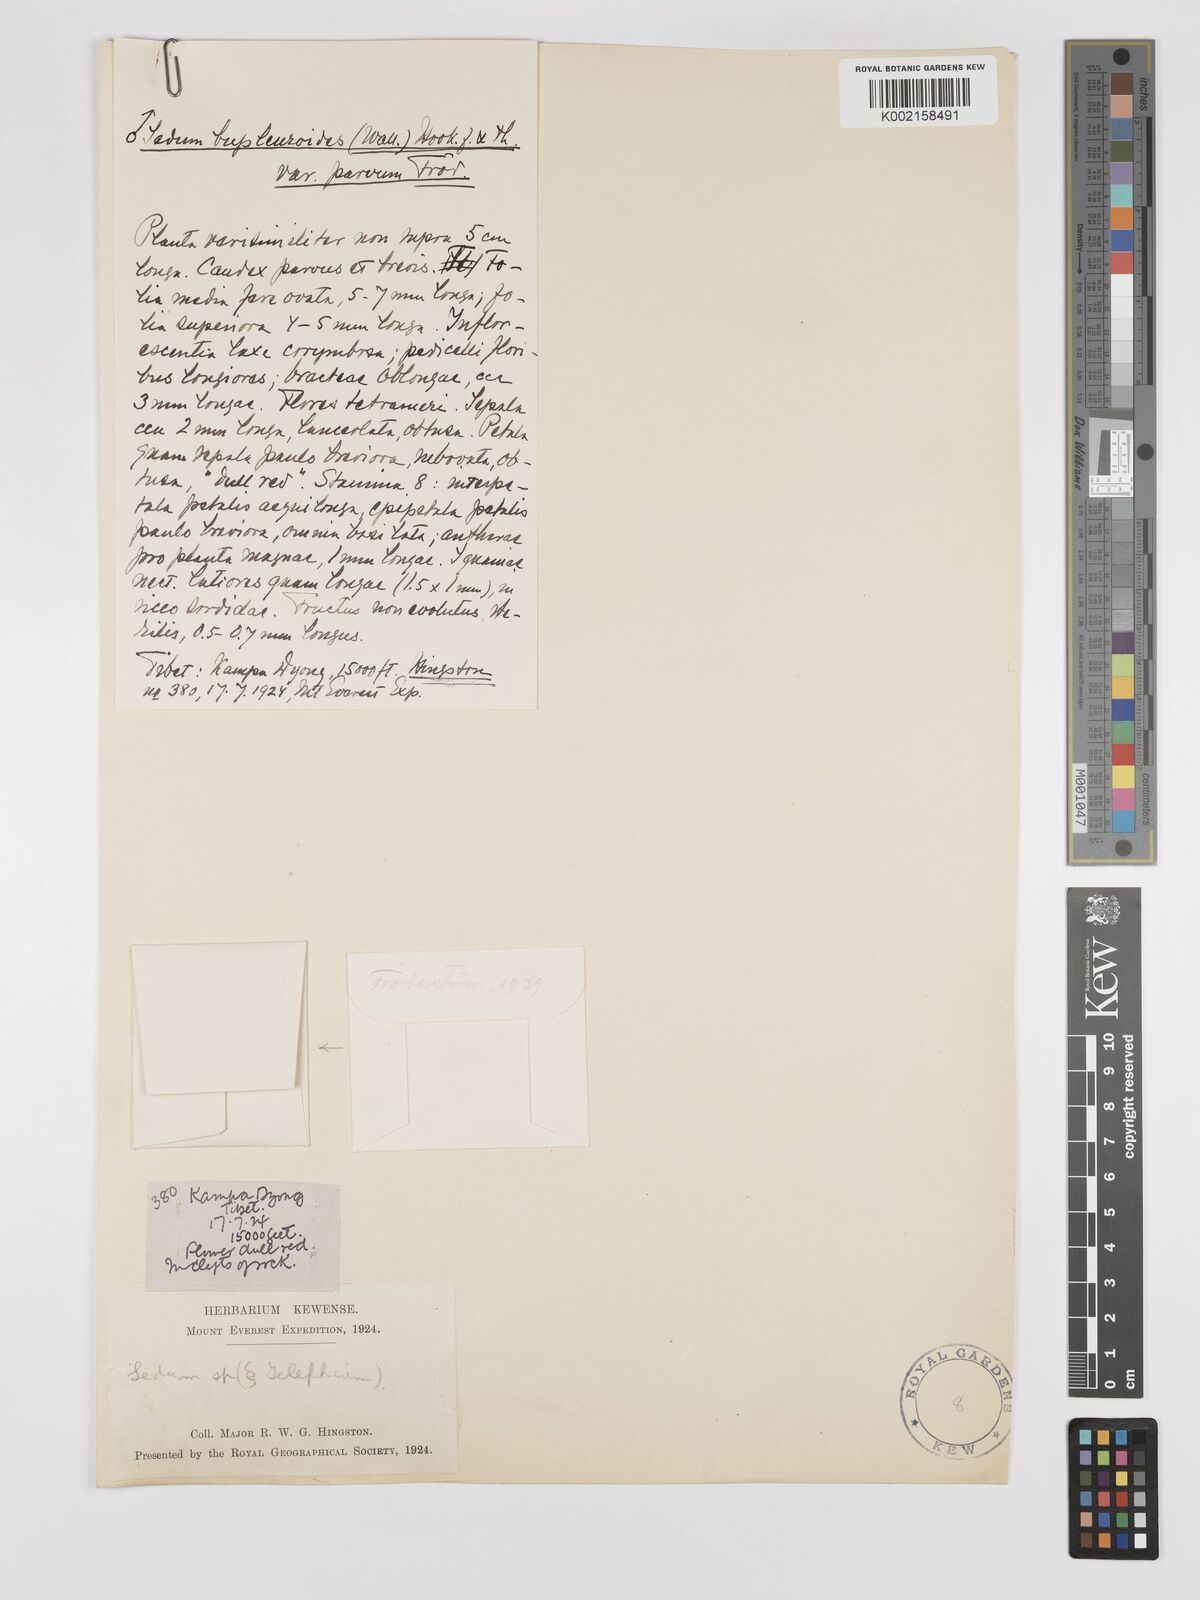 ROYAL BOTANIC GARDENS KEW
K002158491
♂ Sedum bupleuroides (Wall.) Hook. f. & Th.
var. parvum Fröd.
Planta verisimiliter non supra 5 cm
longa. Caudex parvus et brevis. Fo-
lia media fere ovata, 5-7 mm longa; fo-
lia superiora 4-5 mm longa. Inflor-
escentia laxe corymbosa; pedicelli flori-
bus longiores; bracteae oblongae, cca
3 mm longae. Flores tetrameri. Sepala
cca 2 mm longa, lanceolata, obtusa. Petala
quam sepala paulo breviora, subovata, ob-
tusa, "dull red". Stamina 8: interpe-
tala petalis aequilonga, epipetala petalis
paulo breviora, omnia basi lata; antherae
pro planta magnae, 1 mm longae. Squamae
nect. latiores quam longae (1.5 x 1 mm), in
sicco sordidae. Fructus non evolutus, ste-
rilis, 0.5-0.7 mm longus.
Tibet: Kampa Dzong, 15000 ft. Hingston
no 380, 17.7.1924, Mt Everest Exp.
Fröderström, 1939.
←
380 Kampa Dzong
Tibet.
17.7.24
15000 feet.
Flower dull red.
In clefts of rock.
HERBARIUM KEWENSE.
MOUNT EVEREST EXPEDITION, 1924.
Sedum sp (§ Telephium).
COLL. MAJOR R. W. G. HINGSTON.
Presented by the ROYAL GEOGRAPHICAL SOCIETY, 1924.
ROYAL GARDENS
8
KEW
inches
Density
Don Williams
centimeters
M001047
Kew
Royal Botanic Gardens
copyright reserved
0 1 2 3 4 5 6 7 8 9 10
cm